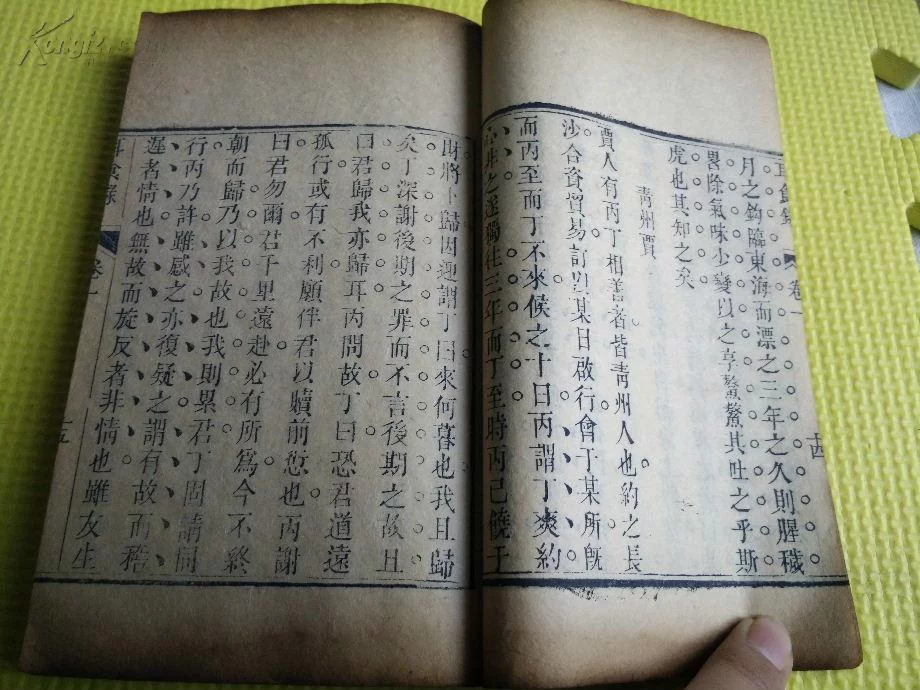 耳食錄 卷一 十四
月之鈎臨東海而漂之三年之久則腥穢
畧除氣味少變以之享鰲鰲其吐之乎斯
虎也其知之矣
青州賈
賈人有丙丁相善者皆青州人也約之長
沙合資貿易訂以某日啟行會于某所旣
而丙至而丁不來候之十日丙謂丁爽約
心非之遂獨往三年而丁至時丙已饒于
財將卜歸因迎謂丁曰來何暮也我且歸
矣丁深謝後期之罪而不言後期之故且
曰君歸我亦歸耳丙問故丁曰恐君道遠
孤行或有不利願伴君以贖前愆也丙謝
曰君勿爾君千里遠赴必有所為今不終
朝而歸乃以我故也我則累君丁固請同
行丙乃許雖感之亦復疑之謂有故而稽
遲者情也無故而旋反者非情也雖友生
耳食錄 卷一 十五
Kongfz.com